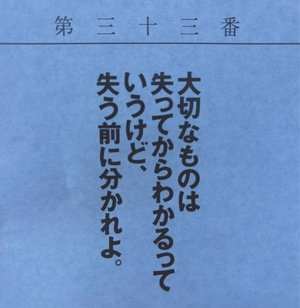 第三十三番
大切なものは
失ってからわかるって
いうけど、
失う前に分かれよ。